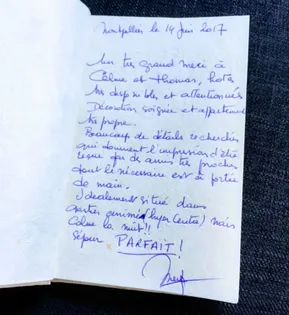 Montpellier le 14 Juin 2017
Un très grand merci à
Céline et Thomas, hotes
très disponibles et attentionnés
Décoration soignée et appartement
très propre.
Beaucoup de détails recherchés
qui donnent l'impression d'être
reçue par des amis très proches
tout le nécessaire est à portée
de main.
Idéalement situé dans
quartier animé (hyper centre) mais
calme la nuit!!
Séjour PARFAIT!